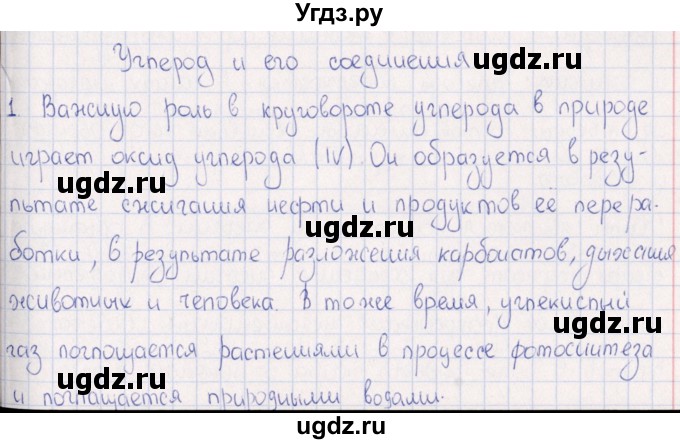 Угдз.ру
Углерод и его соединения
1 Важную роль в круговороте углерода в природе
играет оксид углерода (IV) Он образуется в резу-
льтате сжигания нефти и продуктов её перера-
ботки, в результате разложения карбонатов, дыхания
животных и человека. В тоже время, углекислый
газ поглощается растениями в процессе фотосинтеза
и поглащается природными водами.
ugdz.ru
ugdz.ru
ugdz.ru
ugdz.ru
ugdz.ru
ugdz.ru
ugdz.ru
ugdz.ru
Угдз.ру